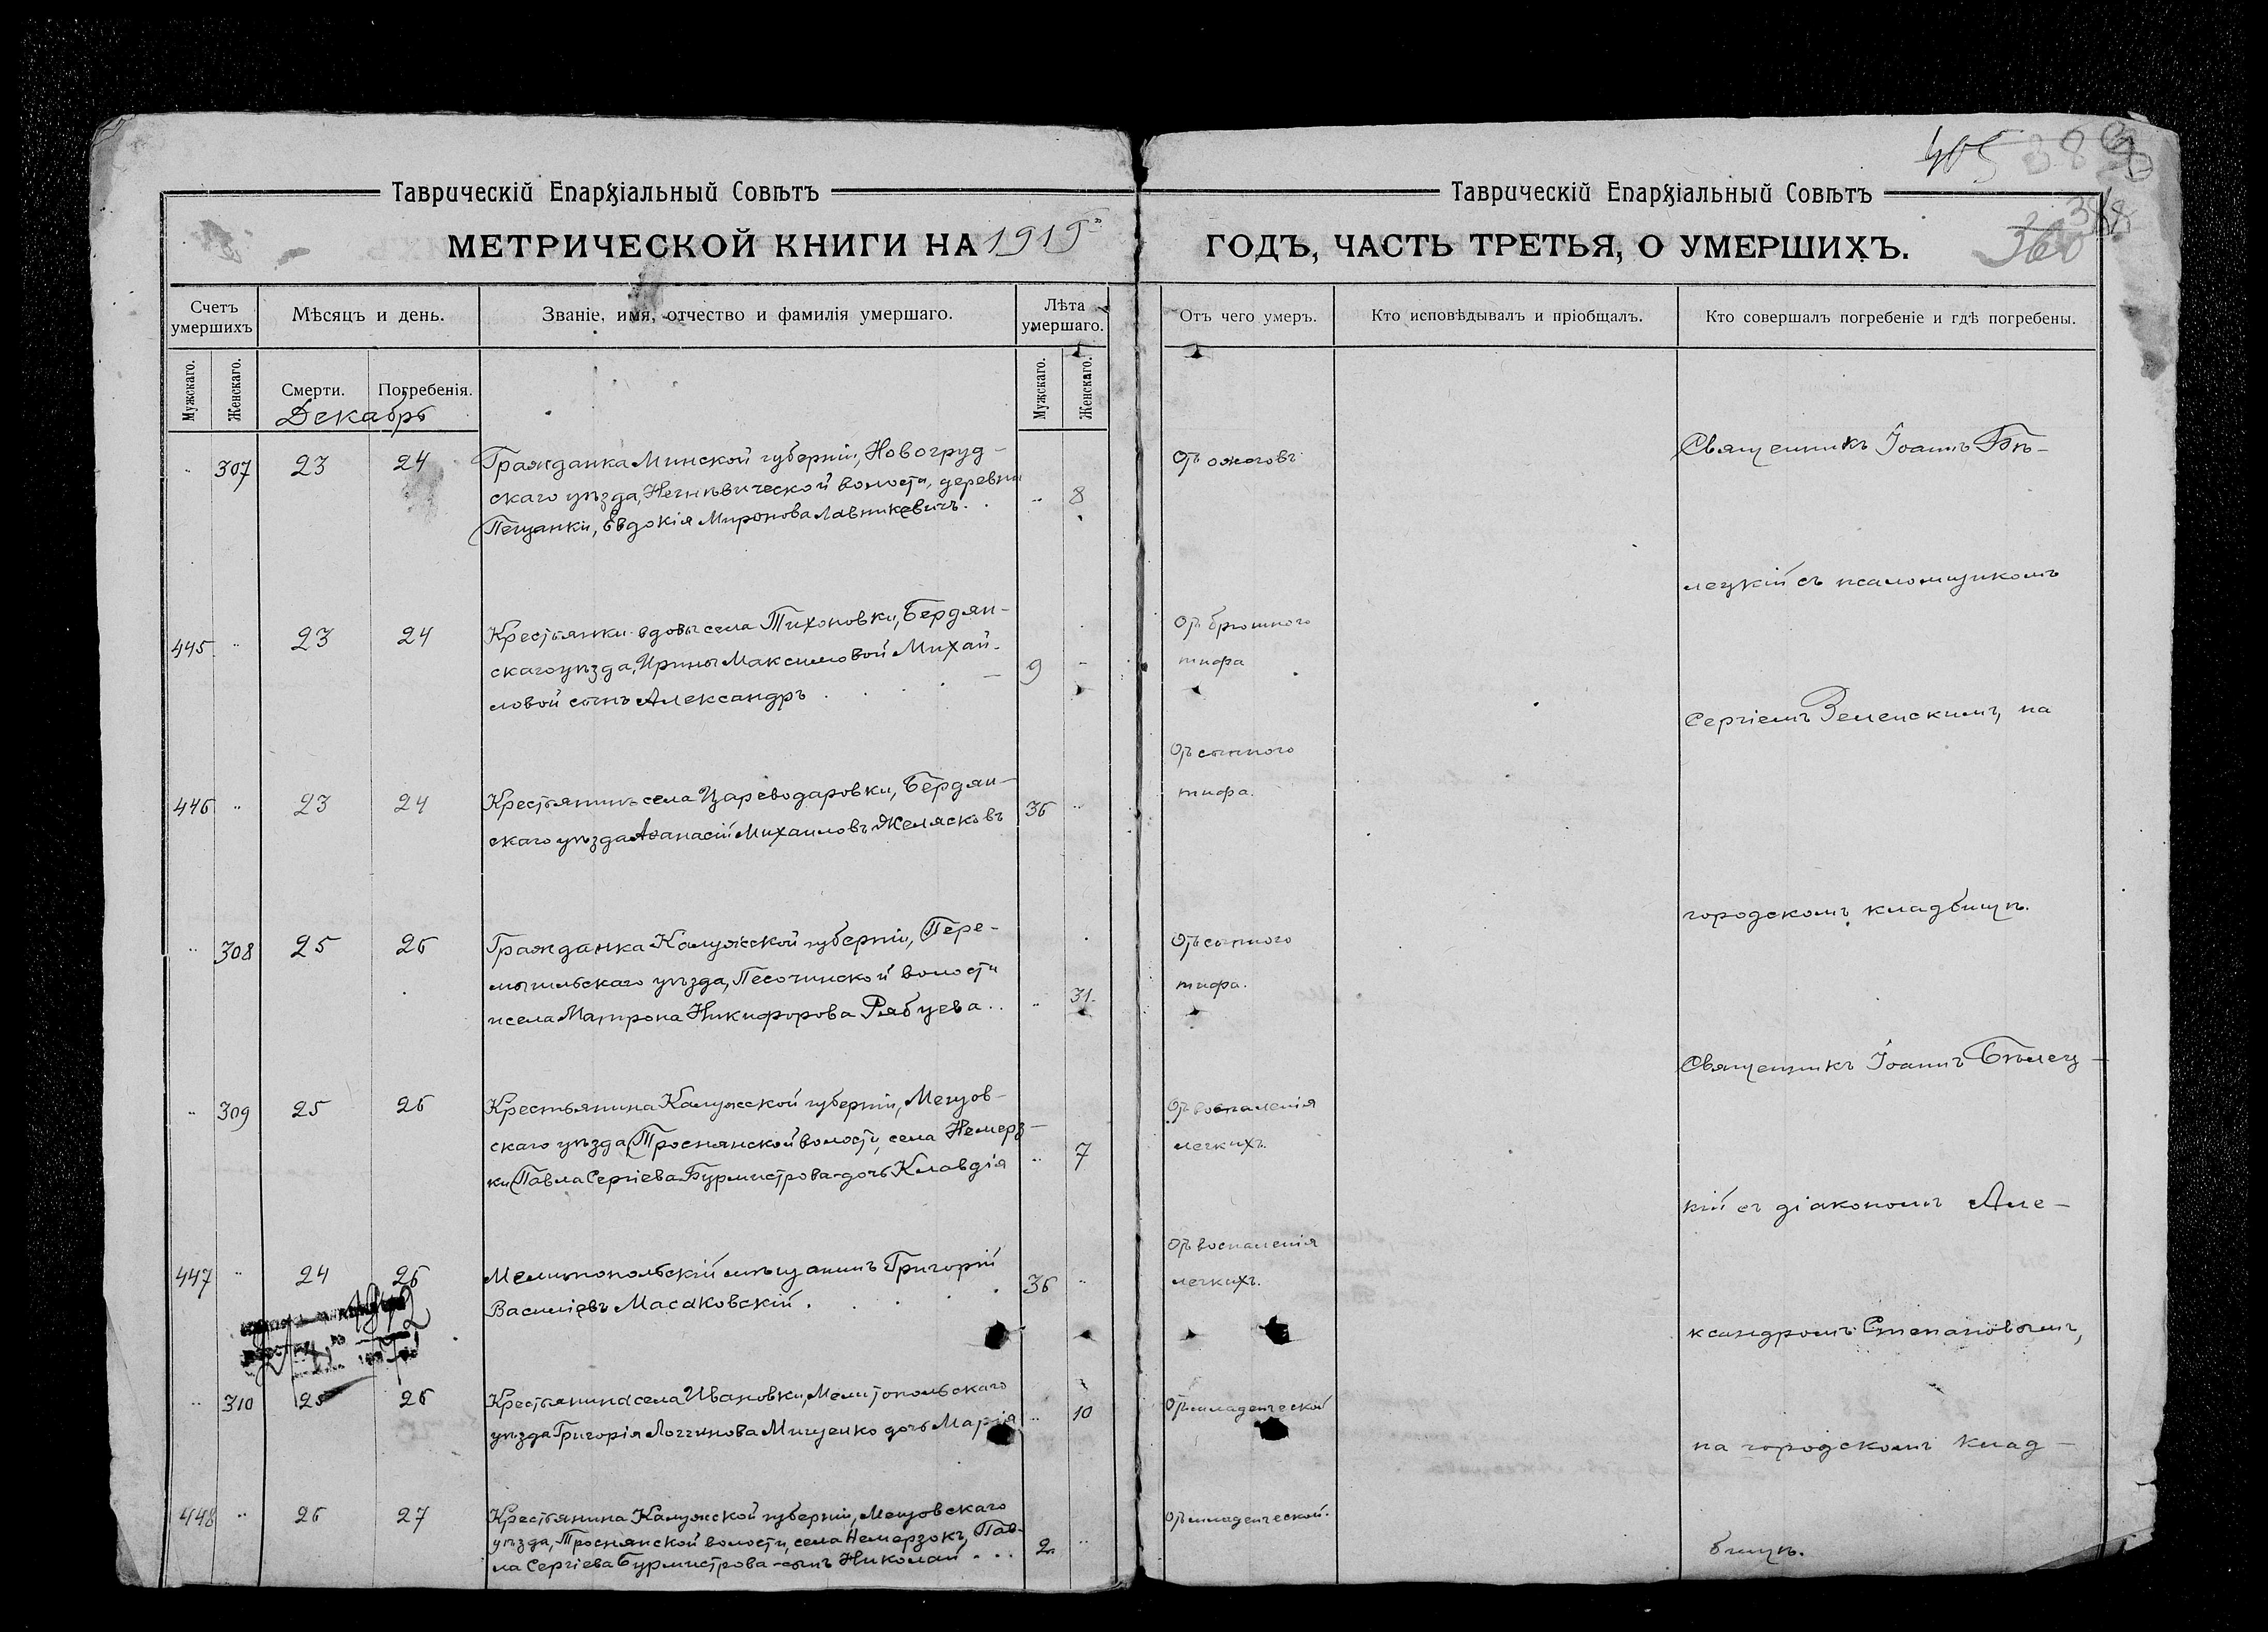 405
Таврическій Епархіальный Совѣтъ
Таврическій Епархіальный Совѣтъ
388
МЕТРИЧЕСКОЙ КНИГИ НА 1919
ГОДЪ, ЧАСТЬ ТРЕТЬЯ, О УМЕРШИХЪ.
360
Счетъ умершихъ
Мѣсяцъ и день.
Званіе, имя, отчество и фамилія умершаго.
Лѣта умершаго.
Отъ чего умеръ.
Кто исповѣдывалъ и пріобщалъ.
Кто совершалъ погребеніе и гдѣ погребены.
Мужскаго.
Женскаго.
Смерти.
Погребенія.
Мужскаго.
Женскаго.
Декабрь
307 23 24
Гражданка Минской губерніи, Новогруд-
скаго уѣзда, Негнѣвической волости, деревни
Пещанки, Евдокія Миронова Лавникевичъ.
8
Отъ ожоговъ
445 23 24
Крестьянки вдовы села Тихоновки, Бердян-
скаго уѣзда, Ирины Максимовой Михай-
ловой сынъ Александръ
9
Отъ брюшного
тифа
446 23 24
Крестьянинъ села Цареводаровки, Бердян-
скаго уѣзда Аѳанасій Михаиловъ Желясковъ
36
Отъ сыпного
тифа.
308 25 26
Гражданка Калужской губерніи, Пере-
мышльскаго уѣзда, Песочинской волости
и села Матрона Никифорова Рябцева..
31.
Отъ сыпного
тифа.
309 25 26
Крестьянина Калужской губерніи, Мещов-
скаго уѣзда Троснянской волости, села Немерз-
ки Павла Сергіева Бурмистрова-дочь Клавдія
7
Отъ воспаленія
легкихъ.
447 24 26
Мелитопольскій мѣщанинъ Григорій
Василіевъ Масаковскій.
36
Отъ воспаленія
легкихъ.
310 25 26
Крестьянина села Ивановки, Мелитопольскаго
уѣзда Григорія Логгинова Мищенко дочь Марія
10
Отъ младенческой
448 26 27
Крестьянина Калужской губерніи, Мещовскаго
уѣзда, Троснянской волости, села Немерзокъ, Пав-
ла Сергіева Бурмистрова-сынъ Николай...
2
Отъ младенческой.
Священникъ Іоаннъ Бѣ-
лецкій съ псаломщикомъ
Сергіемъ Зеленскимъ, на
городскомъ кладбищѣ.
Священникъ Іоаннъ Бѣлец-
кій съ діакономъ Але-
ксандромъ Степановымъ,
на городскомъ клад-
бищѣ.